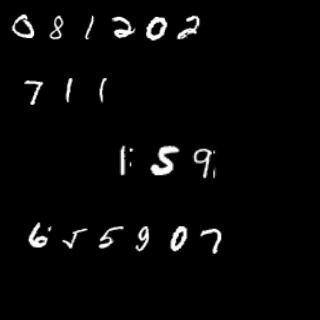 081202
711
159
655907